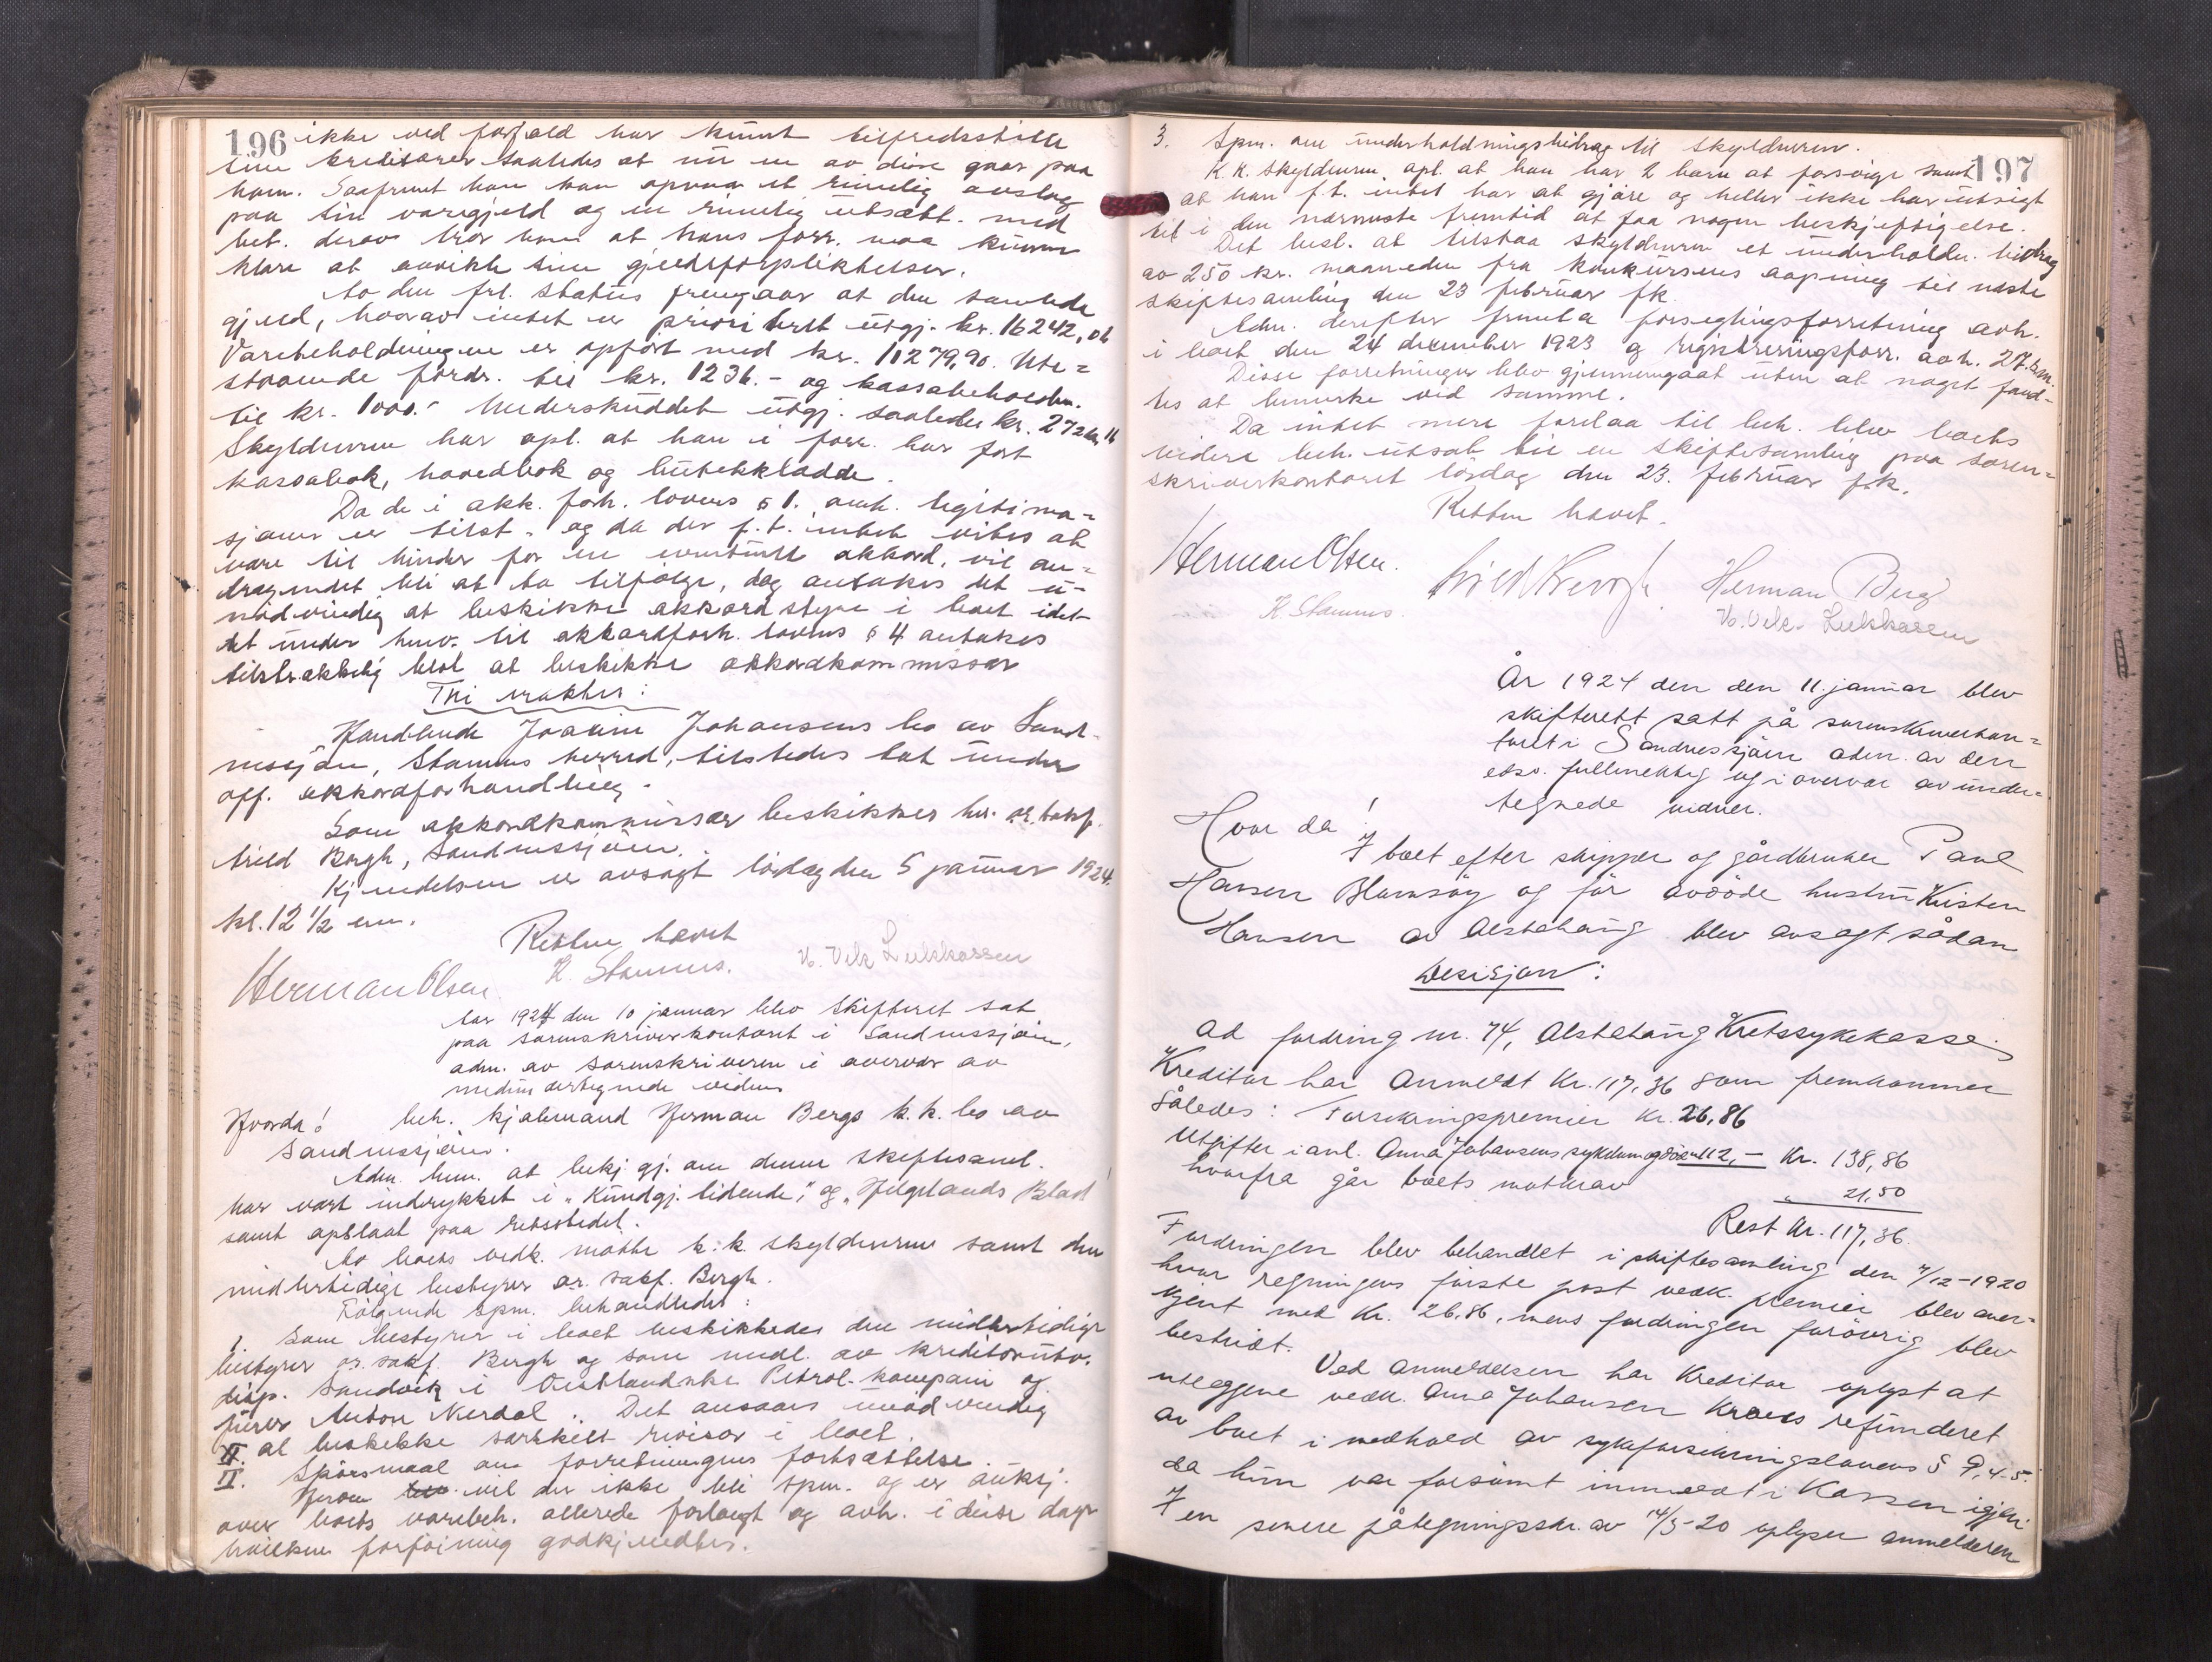 196 ikke ved forfald har kunnet tilfredsstille
sine kreditorer saaledes at nu en av disse gaar paa
ham. Saafremt han kan opnaa et rimelig avslag
paa sin varegjeld og en rimelig utsætt. med
bet. derav tror han at hans forr. maa kunne
klare at avvikle sine gjeldsforpliktelser.
Av den frl. status fremgaar at den samlede
gjeld, hvorav intet er prioritert utgj. kr. 16242,01
Varebeholdningen er opført med kr. 11279,90. Ute=
staaende fordr. til kr. 1236.- og kassabeholdn.
til kr. 1000.- Underskuddet utgj. saaledes kr.
Skyldneren har opl. at han i forr. har ført
kassabok, hovedbok og butikkladde.
Da de i akk. forh. lovens § 1. omh. legitima=
sjoner er tilst. og da der f.t. intet vites at
være til hinder for en eventuell akkord, vil an=
dragendet bli at ta tilfølge, dog antakes det u-
nødvendig at beskikke akkordstyre i boet idet
det under henv. til akkordforh. lovens § 4 antakes
tilstrækkelig blot at beskikke akkordkommissær
Thi eraktes:
Handlende Joakim Johansens bo av Sand-
nessjøen, Stamnes herred, tilstedes tat under
off. akkordforhandling.
Som akkordkommissær beskikkes hr. or. sakf.
Arild Bergh, Sandnessjøen.
Kjendelsen er avsagt lørdag den 5 januar 1924.
kl. 12 1/2 em.
Retten hævet
Herman Olsen. K. Stamnes. V. Vik Lukkassen
Aar 1924 den 10 januar blev skifteret sat
paa sorenskriverkontoret i Sandnessjøen,
adm. av sorenskriveren i overvær av
medundertegnede vidner
Hvorda! beh. kjøbmand Herman Bergs k.k. bo av
Sandnessjøen.
Adm. bem. at bekj. gj. om denne skiftesaml.
har vært indrykket i "Kundgj. tidende," og "Helgelands Blad"
samt opslaat paa retsstedet.
Av boets vedk. møtte k.k. skyldneren samt den
midlertidige bestyrer or. sakf. Bergh.
Følgende spm. behandledes:
1 Som bestyrer i boet beskikkedes den midlertidige
bestyrer or. sakf. Bergh og som medl. av kreditorutv.
disp. Sandvik i Vestlandske Petrol-kompani og
fører Anton Nerdal. Det ansaaes unødvendig
at beskikke særskilt revisor i boet.
II. Spørsmaal om forretningens fortsættelse.
Herom vil der ikke bli spm. og er auksj.
over boets varebeh. allerede forlangt og avh. i disse dage
hvilken forføining godkjendtes.
3. Spm. om underholdningsbidrag til skyldneren. 197
K.K. Skyldneren opl. at han har 2 barn at forsørge samt
at han f.t. intet har at gjøre og heller ikke har utsigt
til i den nærmeste fremtid at faa nogen beskjeftigelse.
Det besl. at tilstaa skyldneren et underholdn. bidrag
av 250 kr. maaneden fra konkursens aapning til næste
skiftesamling den 23 februar fk.
Adm. derefter fremla forseglingsforretning avh.
i boet den 24 desember 1923 og registreringsforr. avh. 27. s.m.
Disse forretninger blev gjennemgaat uten at noget fand-
tes at bemerke ved samme.
Da intet mere forelaa til beh. blev boets
videre beh. utsat til en skiftesamling paa soren=
skriverkontoret lørdag den 23. februar f.k.
Retten hævet.
Herman Olsen. Arild Bergh. Herman Berg
K. Stamnes. V. Vik. Lukkassen
År 1924 den den 11. januar blev
skifterett satt på sorenskriverkon=
toret i Sandnessjøen adm. av den
edsv. fullmektig og i overvær av under=
tegnede vidner.
Hvor da!
I boet efter skipper og gårdbruker Paul
Hansen Blomsøy og før avdøde hustru Kristen
Hansen av Alstahaug blev avsagt sådan
Desisjon:
Ad fordring nr. 74, Alstahaug Kretssykekasse.
Kreditor har anmeldt Kr. 117,36 som fremkommer
således: Forsikringspremier Kr. 26,86
Utgifter i anl. Anna Johansens sykdom og død " 112,- Kr. 138,86
hvorfra går boets motkrav " 21,50
Rest Kr. 117,36.
Fordringen blev behandlet i skiftesamling den 7/12-1920
hvor regningens første post vedk. premier blev aner=
kjent med Kr. 26,86, mens fordringen forøvrig blev
bestridt.
Ved anmeldelsen har Kreditor oplyst at
utleggene vedk. Anna Johansen kræves refunderet
av boet i medhold av sykeforsikringslovens § 9, 4-5.
da hun var forsømt innmeldt i Kassen igjen.
I en senere påtegningsskr. av 14/5-20 oplyser anmelderen